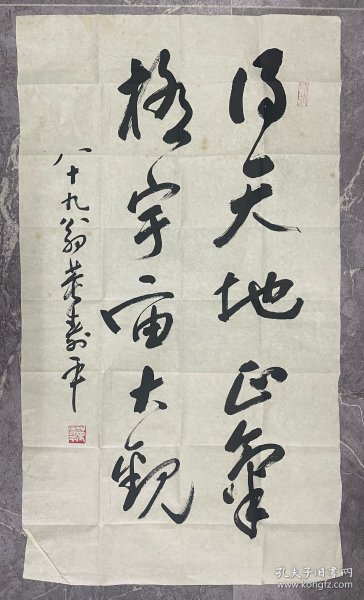 得天地正氣
極宇宙大観
八十九翁董壽平
孔夫子旧书网
www.kongfz.com